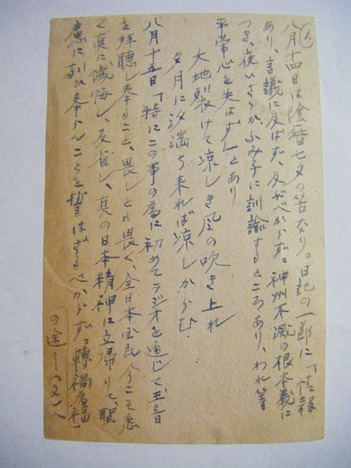 八月十四日は陰暦七夕の筈なり。日記の一節に「情報
あり、言議に及ばず、及ぶべからず。神州不滅の根本義に
つき、夜いささかふみ子に訓諭するところあり、われ等
平常心を失はず」とあり
大地裂けて凉しき風の吹き上れ
夕月に汐満ち来れば凉しからむ
八月十五日「特にこの事の為に初めてラジオを通じて玉音
を拝聴し奉ること、畏しとも畏く、全日本国民今こそ悉
く真に懺悔し、反省し、真の日本精神に立帰りて、聖
慮に副ひ奉らんことを誓はざるべからず。轉禍為福
の途――(文)